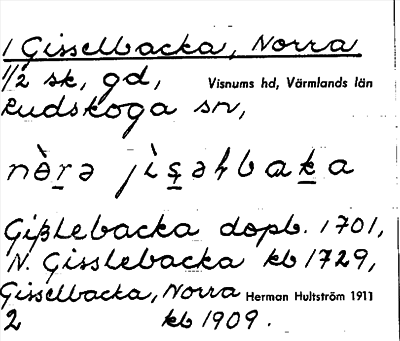 1 Gisselbacka, Norra
1/2 sk, gd, Visnums hd, Värmlands län
Rudskoga sn,
nə̀rə jìsəɫbaka
Gißlebacka dopb. 1701,
N. Gisslebacka kb 1729,
Gisselbacka, Norra Herman Hultström 1911
2 kb 1909.